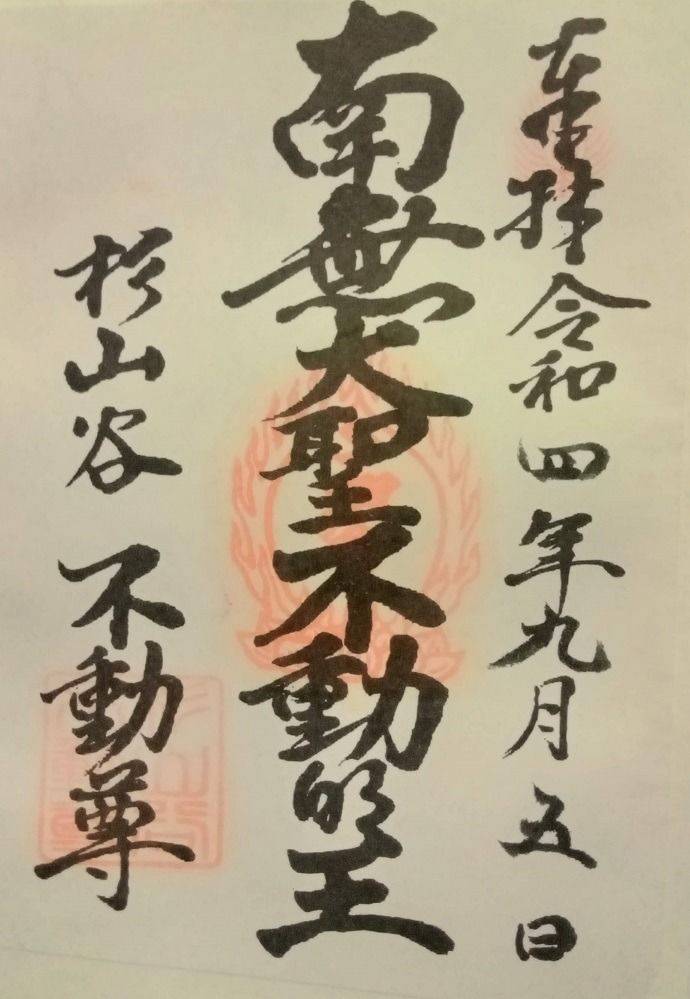 奉拝 令和四年九月五日
南無大聖不動明王
杉山谷 不動尊